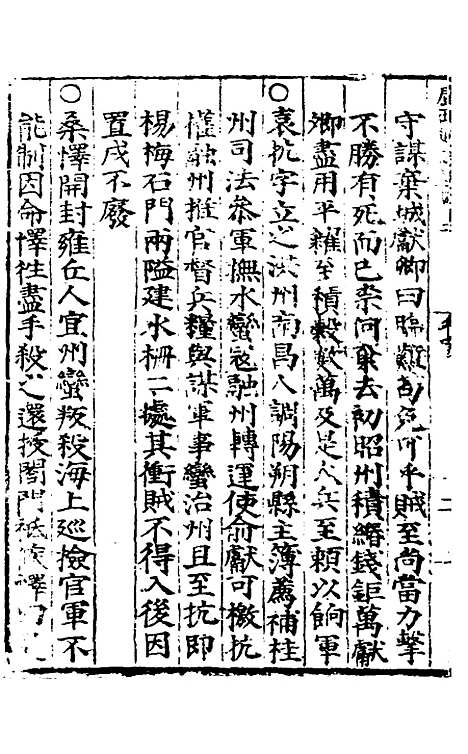 守謀棄城獻卿曰臨難苟免可乎賊至尚當力擊
不勝有死而已柰何棄去初昭州積緡錢鉅萬獻
卿盡用平糴至積穀數萬及是大兵至賴以餉軍
○袁抗字立之洪州南昌人調陽朔縣主簿薦補桂
州司法叅軍撫水蠻寇融州轉運使俞獻可檄抗
權融州推官督兵糧與謀軍事蠻治州且至抗即
楊梅石門兩隘建水柵二據其衝賊不得入後因
置戍不廢
○桑懌開封雍丘人宜州蠻叛殺海上巡檢官軍不
能制因命懌往盡手殺之還授閤門祗候懌曰